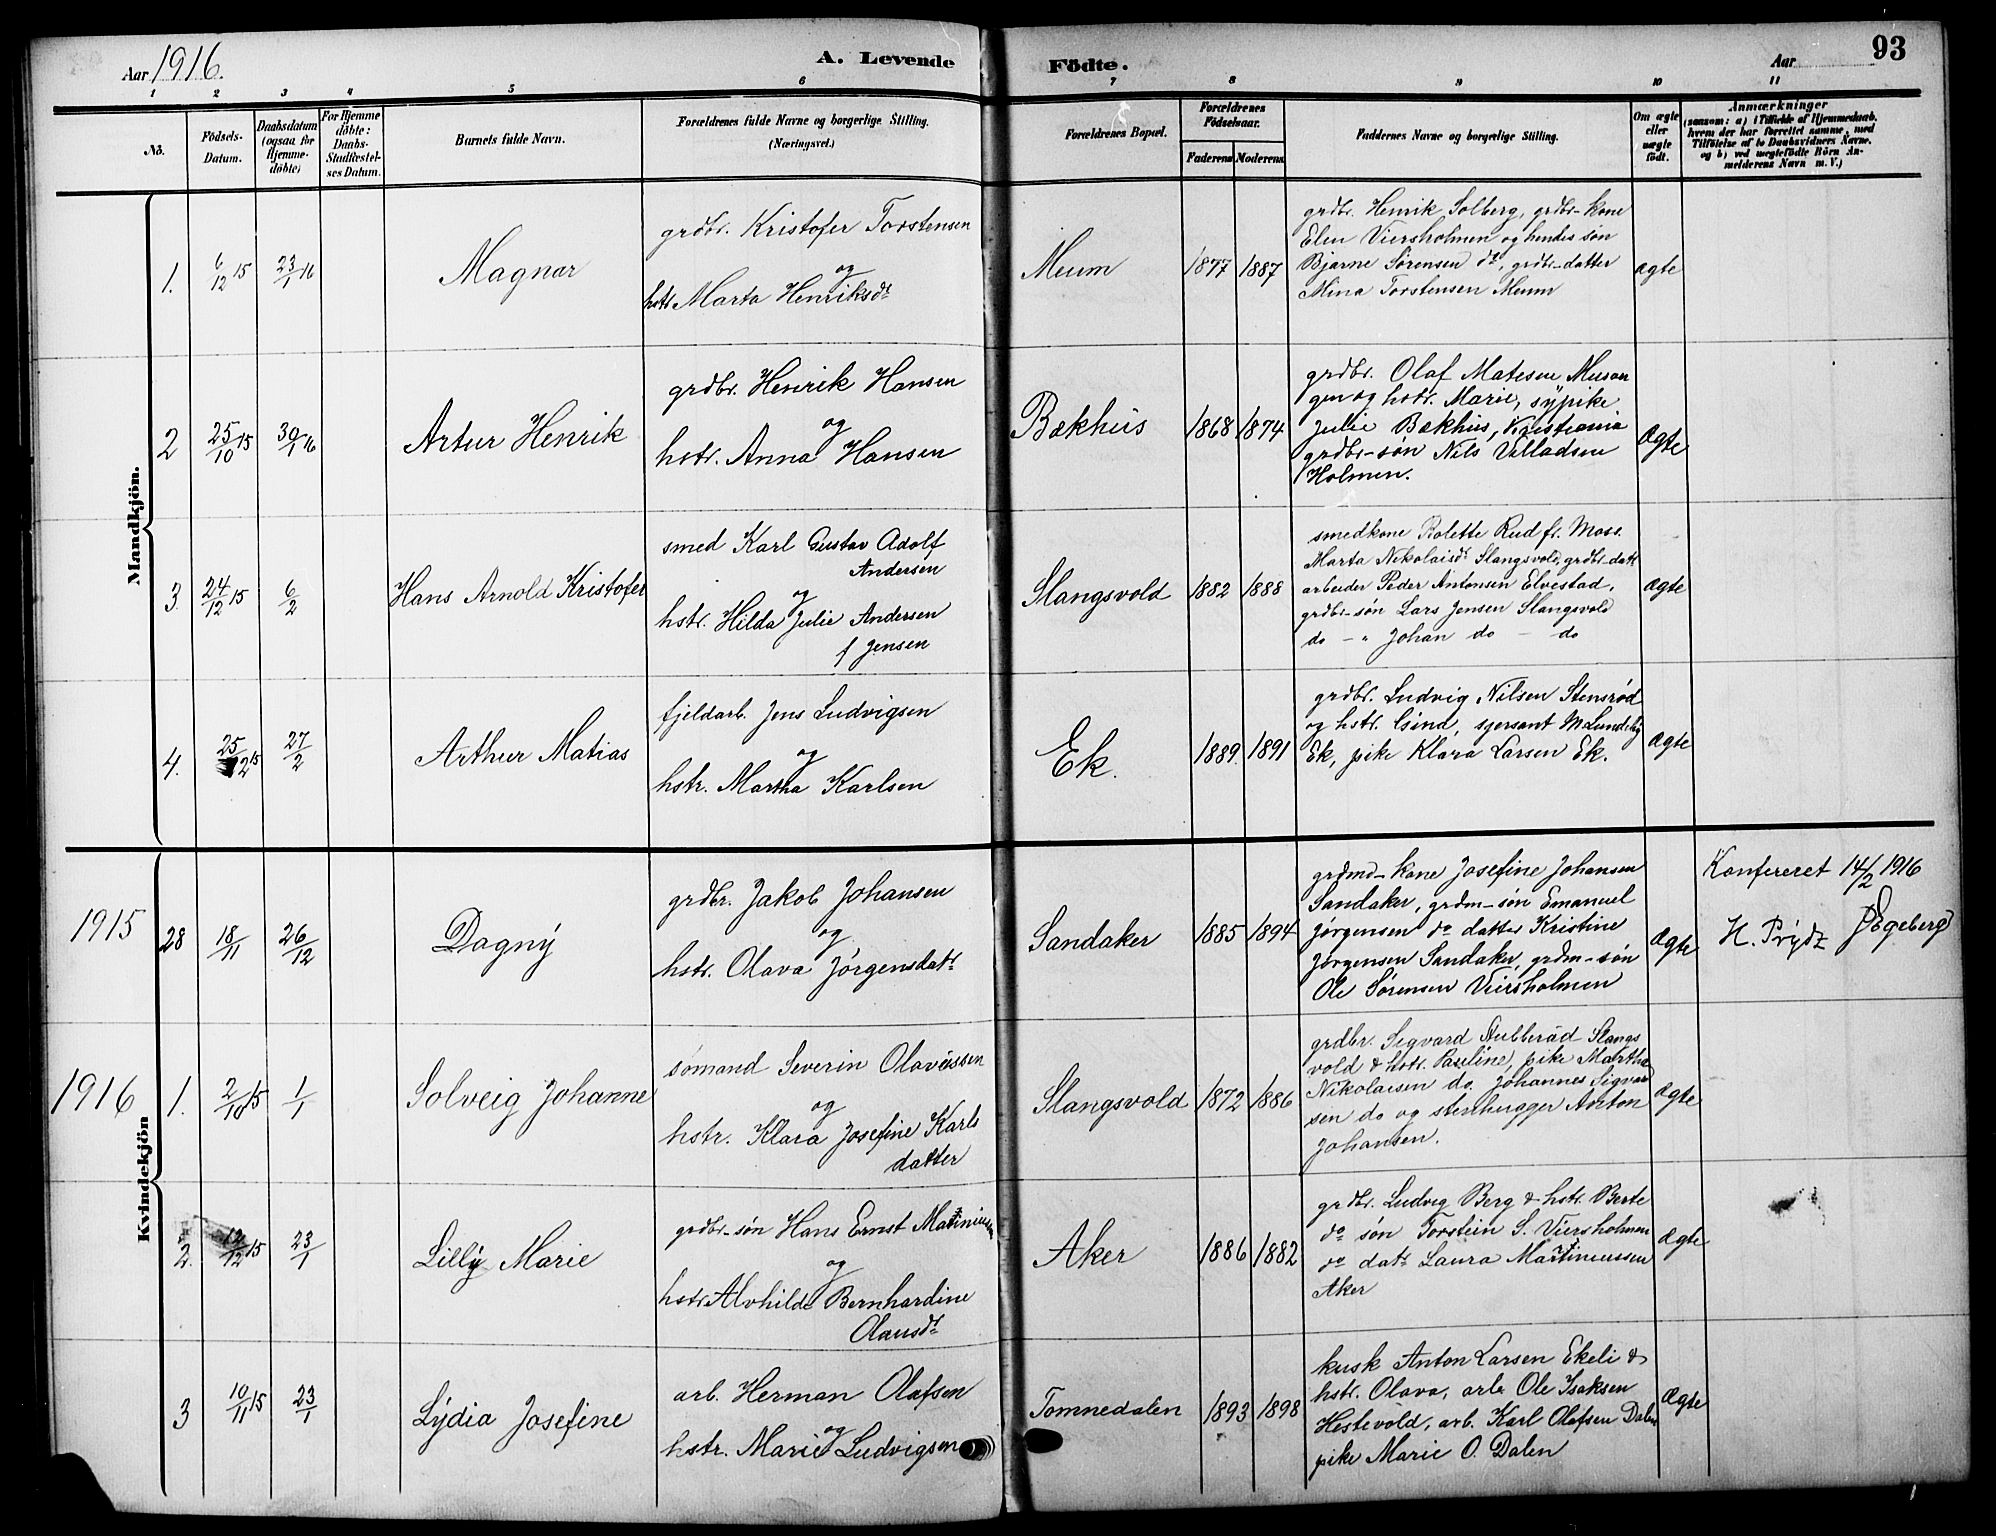 Aar 1916.
A. Levende Födte.
Aar 93
1 2 3 4 5 6 7 8 9 10 11
No.
Födsels-
Datum.
Daabsdatum
(ogsaa for
Hjemme-
döbte)
For Hjemme
döbte:
Daabs-
Stadfæstel-
ses Datum.
Barnets fulde Navn.
Forældrenes fulde Navne og borgerlige Stilling.
(Næringsvei.)
Forældrenes Bopæl.
Forældrenes
Födselsaar.
Faderens Moderens
Faddernes Navne og borgerlige Stilling.
Om ægte
eller
uægte
födt.
Anmærkninger
(saasom: a) i Tilfælde af Hjemmedaab,
hvem der har forrettet samme, med
Tilföielse af to Daabsvidners Navne.
og b) ved uægtefödte Börn An-
melderens Navn m. V.)
Mandkjön.
1. 6/12 15 23/1 16 Magnar
grdbr. Kristofer Torstensen
og
hstr. Marta Henriksdt
Meum 1877 1887
grdbr. Henrik Solberg, grdbr-kone
Elen Viersholmen og hendes søn
Bjarne Sørensen do, grdbr-datter
Mina Torstensen Meum
ægte
2 25/10 15 30/1 16 Artur Henrik
grdbr. Henrik Hansen
og
hstr. Anna Hansen
Bækhus 1868 1874
grdbr. Olaf Matesen
gen og hstr. Marie, sypike
Julie Bækhus, Kristiania
grdbr-søn Nils Villadsen
Holmen.
ægte
3. 24/12 15 6/2 Hans Arnold Kristofer
smed Karl Gustav Adolf
Andersen
og
hstr. Hilda Julie Andersen
f Jensen
Slangsvold 1882 1888
smedkone Rud fr. Moss.
Marta Nikolaisdt Slangsvold, grdbr-datt
arbeider Peder Antonsen Elvestad,
grdbr-søn Lars Jensen Slangsvold
do - " Johan do - do
ægte
4. 25/12 15 27/2 Arthur Matias
fjeldarb. Jens Ludvigsen
og
hstr. Martha Karlsen
Ek. 1889. 1891
grdbr. Ludvig Nilsen Stensrød
og hstr. sjersant M. Lundeby
Ek, pike Klara Larsen Ek.
ægte
Kvindekjön
1915 28 18/11 26/12 Dagny
grdbr. Jakob Johansen
og
hstr. Olava Jörgensdatr
Sandaker 1885 1894
grdmd-kone Josefine Johansen
Sandaker, grdm-søn Emanuel
Jørgensen do datter Kristine
Jørgensen Sandaker, grdm-søn
Ole Sørensen Viersholmen
ægte
Konfereret 14/2 1916
H. Prydz Egeberg
1916 1. 2/10 15 1/1 Solveig Johanne
sømand Severin Olavesen
og
hstr. Klara Josefine Karls
datter
Slangsvold 1872 1886
grdbr. Sigvard Stubberød Slangs
vold & hstr. Pauline, pike Martha
Nikolaisen do. Johannes Sigvard
sen do og stenhugger Anton
Johansen.
ægte
2. 12/12 15 23/1 Lilly Marie
grdbr-søn Hans Ernst Martiniussen
og
hstr. Alvhilde Bernhardine
Olausdt
Aker 1886 1882
grdbr. Ludvig Berg & hstr. Berte
do søn Torstein S. Viersholmen
do datr Laura Martiniussen
Aker
ægte
3 10/11 15 23/1 Lydia Josefine
arb. Herman Olafsen
og
hstr. Marie Ludvigsen
Tomnedalen 1893 1898
kusk Anton Larsen Ekeli &
hstr. Olava, arb. Ole Isaksen
Hestevold, arb. Karl Olafsen Dalen
pike Marie O. Dalen
ægte